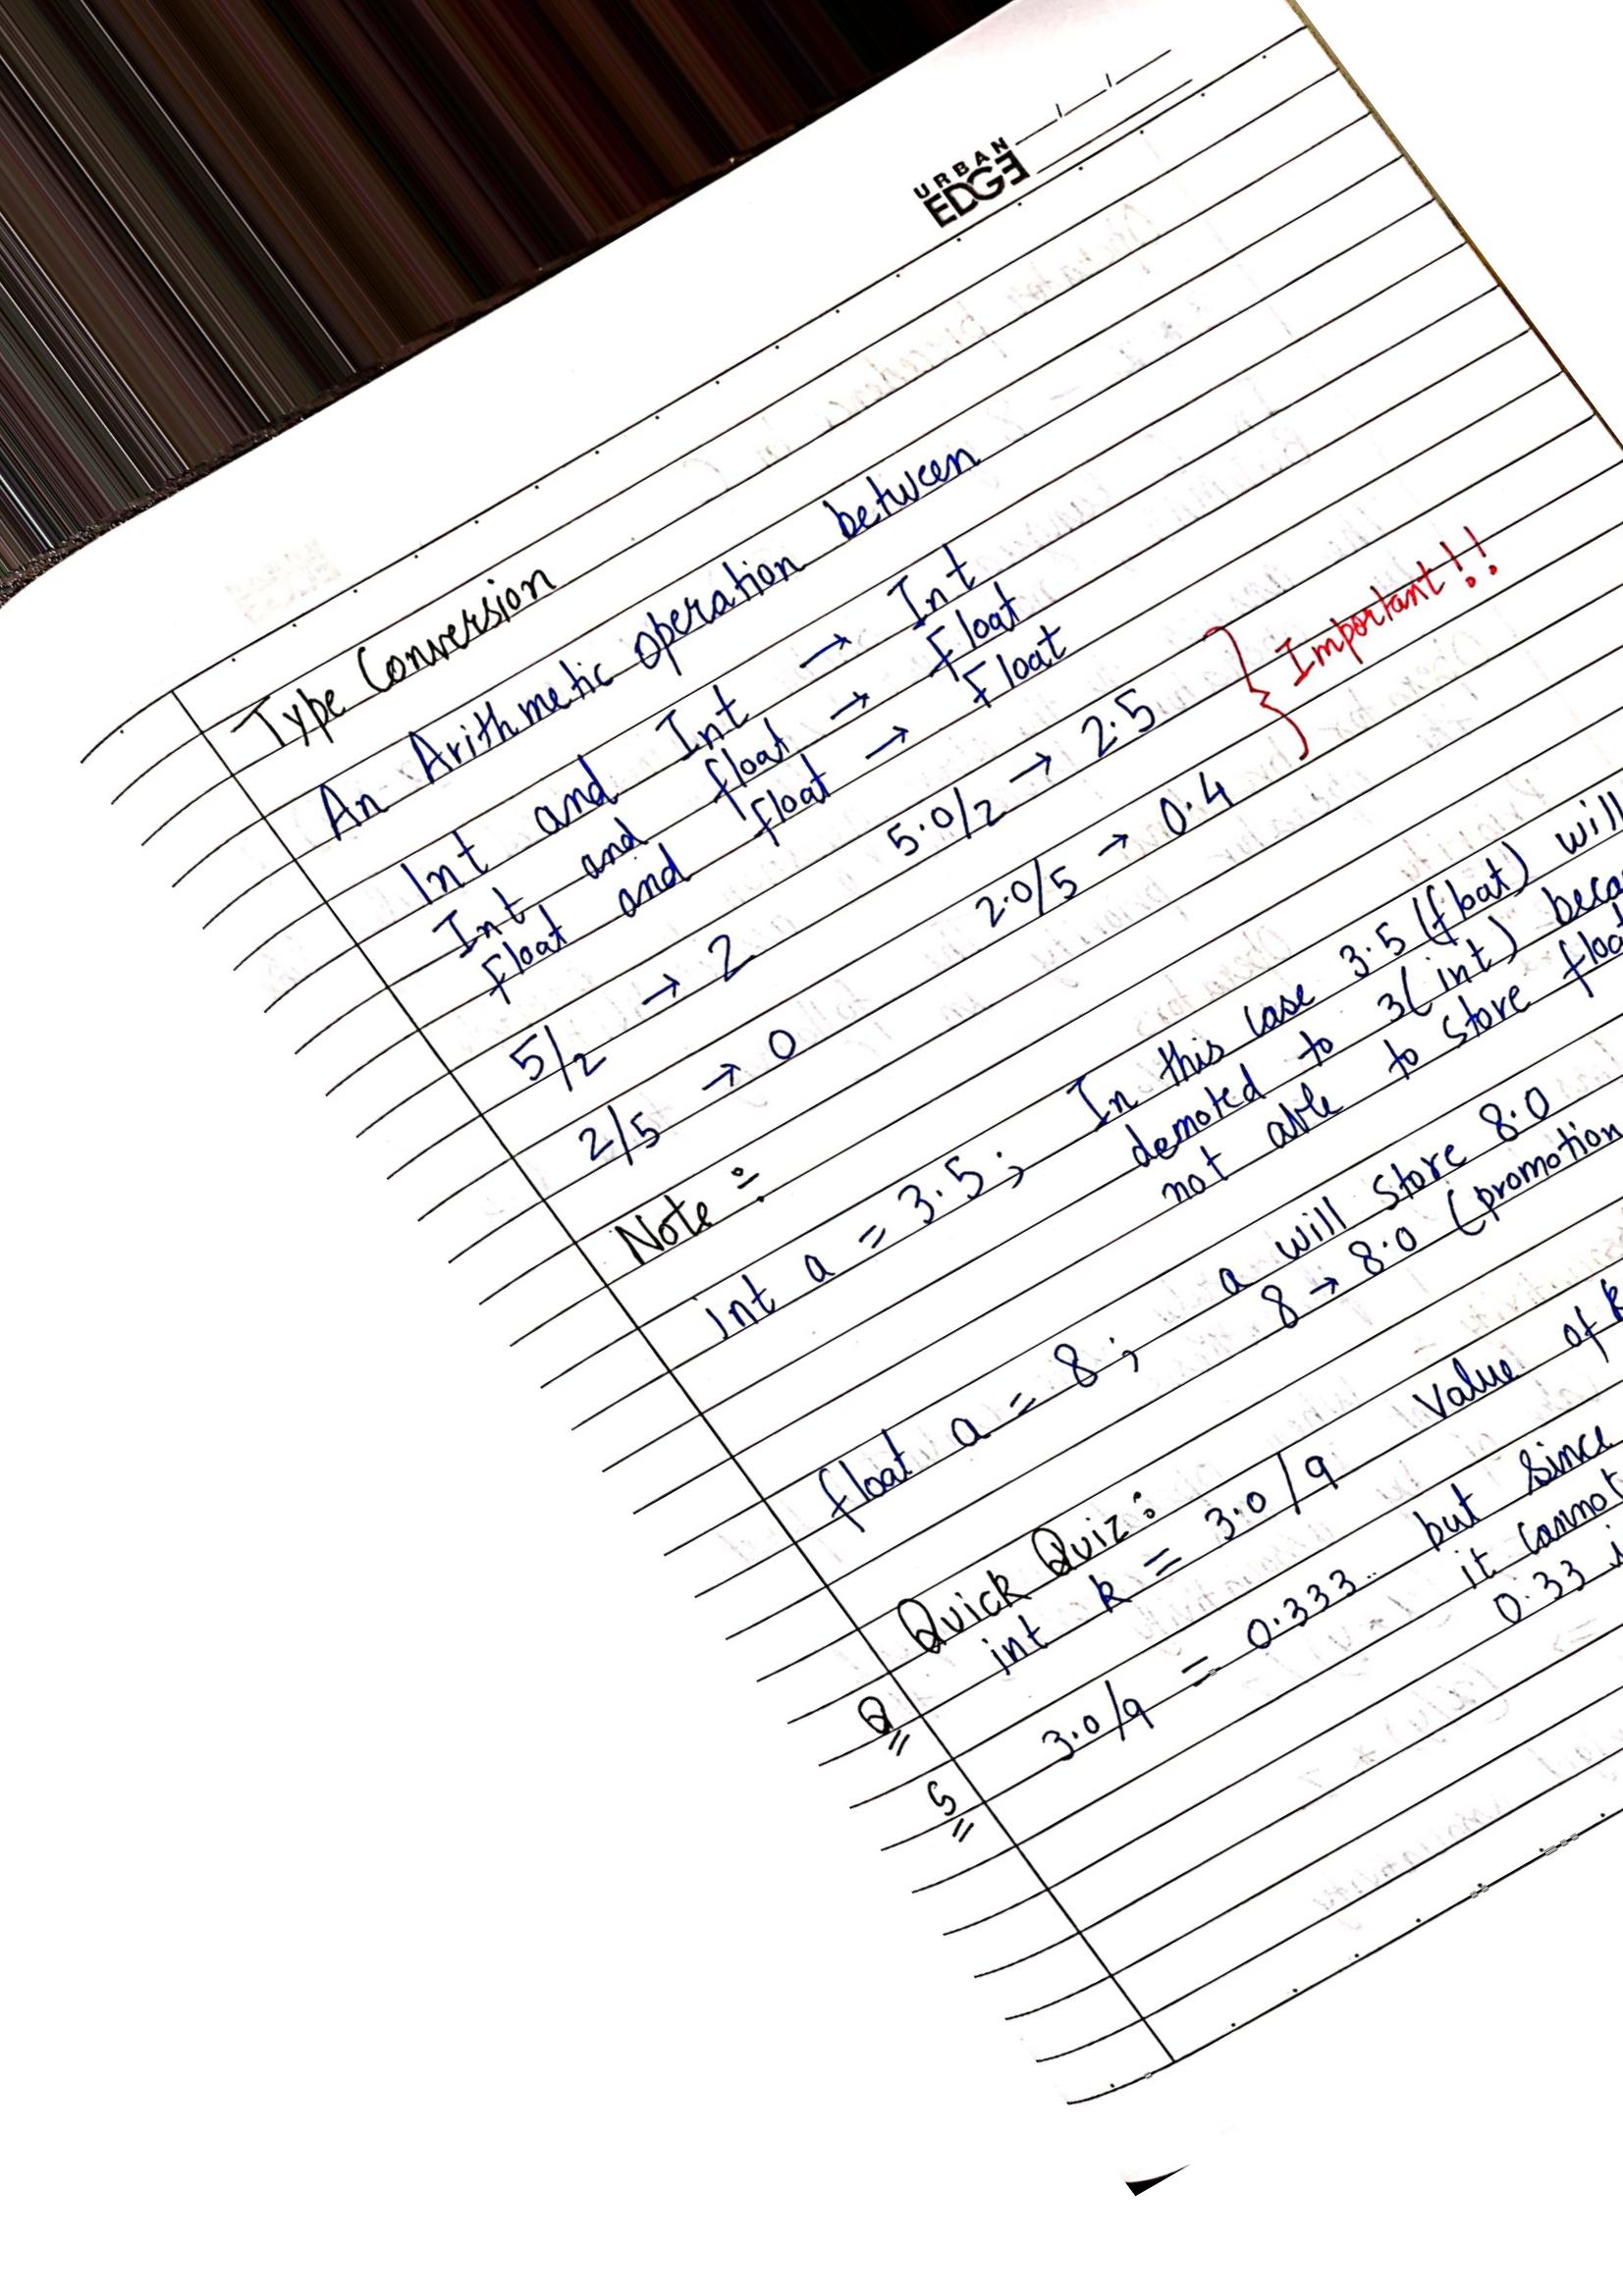 URBAN
EDGE
Type Conversion
An Arithmetic operation between
Int and Int → Int
Int and float → float
float and float → float
5/2 → 2 5.0/2 → 2.5
2/5 → 0 2.0/5 → 0.4
} Important!!
Note :-
int a = 3.5; In this case 3.5 (float) will
demoted to 3(int)
not able to store
float a = 8; a will store 8.0
8 → 8.0 (promotion
Quick Quiz:
Q int k = 3.0/9 Value of
S 3.0/9 = 0.333.. but since
it cannot
0.33